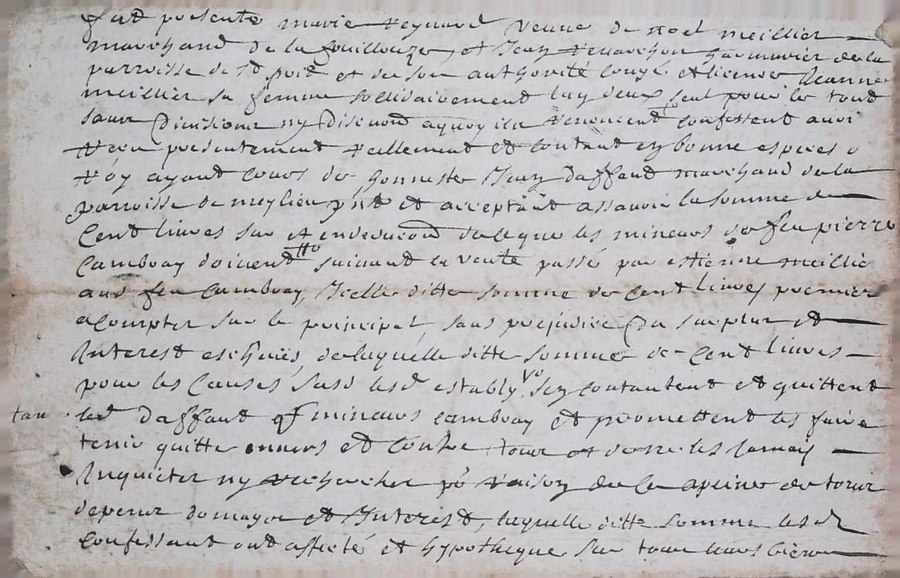 fut presente marie Reynard veuve de noel meillier
marchand de la fouillouze, et Jean de la
parroisse de et de son authorité congé et licence Jeanne
meillier sa femme sollidairement l'un deux seul pour le tout
sans division ny discution a quoy ils renoncent confessent avoir
receu presentement reellement et contant en bonne especes
ayant cours de honneste Jean daffaud marchand de la
parroisse de meylieu pnt et acceptant assavoir la somme de
Cent livres sur et en deduction de ce que les mineurs de feu pierre
Cambray doivent suivant la vente passé par estienne meillier
aud feu Cambray, Icelle ditte somme de cent livres premier
acompter sur le principal, sans prejudice du surplus et
Interest escheües de laquelle ditte somme de Cent livres
pour les Causes Susd lesd establys s'en contantent et quittent
led Daffaud et mineurs cambray et promettent les faire
tenir quitte envers et contre tous et de ne les Jamais
Inquieter ny rechercher pr raison de ce a peine de tous
depens domages et Interest, laquelle ditte somme lesd
confessant ont affecté et hypotheque sur tous leurs biens
tan